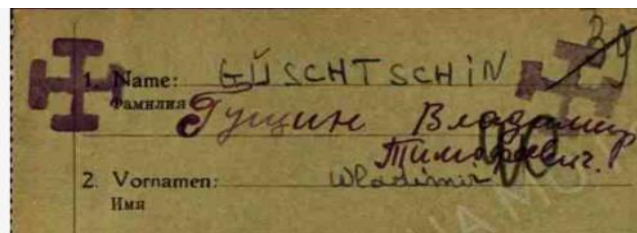 39
1. Name: GÜSCHTSCHIN
Фамилия Гущин Владимир
Тимофеевич.
2. Vornamen: Wladimir
Имя